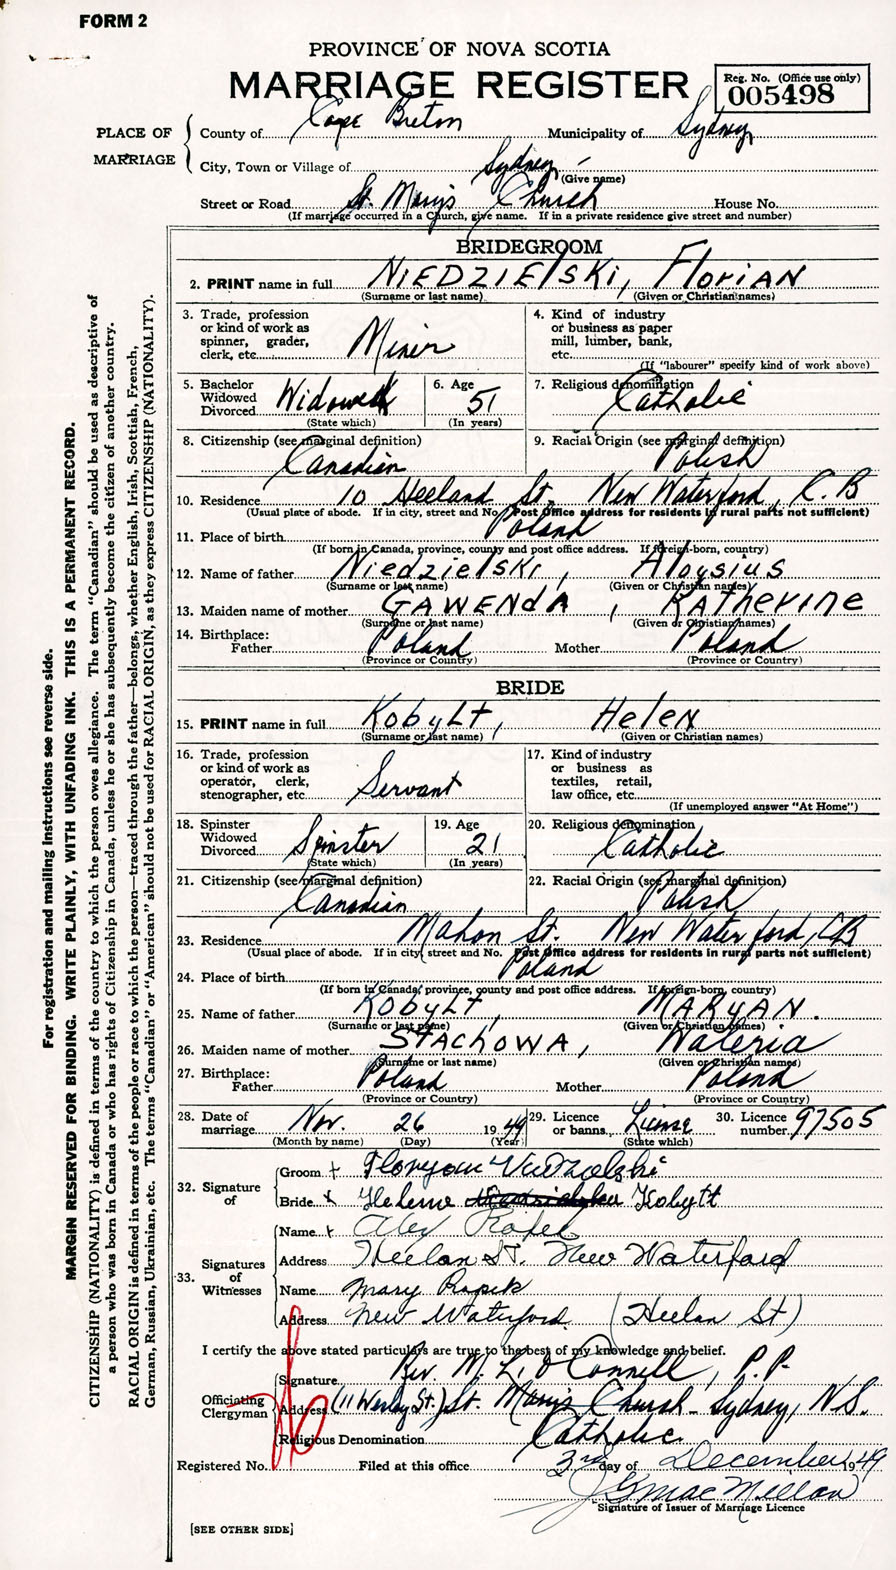 FORM 2
PROVINCE OF NOVA SCOTIA
MARRIAGE REGISTER
Reg. No. (Office use only)
005498
PLACE OF MARRIAGE
County of Cape Breton Municipality of Sydney
City, Town or Village of Sydney
(Give name)
Street or Road St. Mary's Church House No.
(If marriage occurred in a Church, give name. If in a private residence give street and number)
BRIDEGROOM
2. PRINT name in full NIEDZIElSKi, FloriAN
(Surname or last name) (Given or Christian names)
3. Trade, profession or kind of work as spinner, grader, clerk, etc. Miner
4. Kind of industry or business as paper mill, lumber, bank, etc.
(If "labourer" specify kind of work above)
5. Bachelor Widowed Divorced Widowed
(State which)
6. Age 51
(In years)
7. Religious denomination Catholic
8. Citizenship (see marginal definition) Canadian
9. Racial Origin (see marginal definition) Polish
10. Residence 10 Heeland St. New Waterford, C.B
(Usual place of abode. If in city, street and No. Post Office address for residents in rural parts not sufficient)
11. Place of birth Poland
(If born in Canada, province, county and post office address. If foreign-born, country)
12. Name of father NiedzielSKi, AloysiuS
(Surname or last name) (Given or Christian names)
13. Maiden name of mother GAWENdA, KATherine
(Surname or last name) (Given or Christian names)
14. Birthplace: Father Poland Mother Poland
(Province or Country) (Province or Country)
BRIDE
15. PRINT name in full KobyLt, HeleN
(Surname or last name) (Given or Christian names)
16. Trade, profession or kind of work as operator, clerk, stenographer, etc. Servant
17. Kind of industry or business as textiles, retail, law office, etc.
(If unemployed answer "At Home")
18. Spinster Widowed Divorced Spinster
(State which)
19. Age 21
(In years)
20. Religious denomination Catholic
21. Citizenship (see marginal definition) Canadian
22. Racial Origin (see marginal definition) Polish
23. Residence Mahon St. New Waterford, CB
(Usual place of abode. If in city, street and No. Post Office address for residents in rural parts not sufficient)
24. Place of birth Poland
(If born in Canada, province, county and post office address. If foreign-born, country)
25. Name of father KobyLt, MARyAN.
(Surname or last name) (Given or Christian names)
26. Maiden name of mother STAChOWA, Waleria
(Surname or last name) (Given or Christian names)
27. Birthplace: Father Poland Mother Poland
(Province or Country) (Province or Country)
28. Date of marriage Nov. 26 1949
(Month by name) (Day) (Year)
29. Licence or banns License
(State which)
30. Licence number 97505
32. Signature of
Groom
Bride Helene Kobylt
33. Signatures of Witnesses
Name Alex
Address Heelan St. New Waterford
Name Mary Ropek
Address New Waterford. (Heelan St)
I certify the above stated particulars are true to the best of my knowledge and belief.
Officiating Clergyman
Signature Rev. M. L. O'Connell, P.P.
Address St. Mary's Church - Sydney, N.S.
Religious Denomination Catholic
Registered No. Filed at this office 3rd day of December 1949
J G MacMillan
Signature of Issuer of Marriage Licence
[SEE OTHER SIDE]
For registration and mailing instructions see reverse side.
MARGIN RESERVED FOR BINDING. WRITE PLAINLY, WITH UNFADING INK. THIS IS A PERMANENT RECORD.
CITIZENSHIP (NATIONALITY) is defined in terms of the country to which the person owes allegiance. The term "Canadian" should be used as descriptive of
a person who was born in Canada or who has rights of Citizenship in Canada, unless he or she has subsequently become the citizen of another country.
RACIAL ORIGIN is defined in terms of the people or race to which the person—traced through the father—belongs, whether English, Irish, Scottish, French,
German, Russian, Ukrainian, etc. The terms "Canadian" or "American" should not be used for RACIAL ORIGIN, as they express CITIZENSHIP (NATIONALITY).